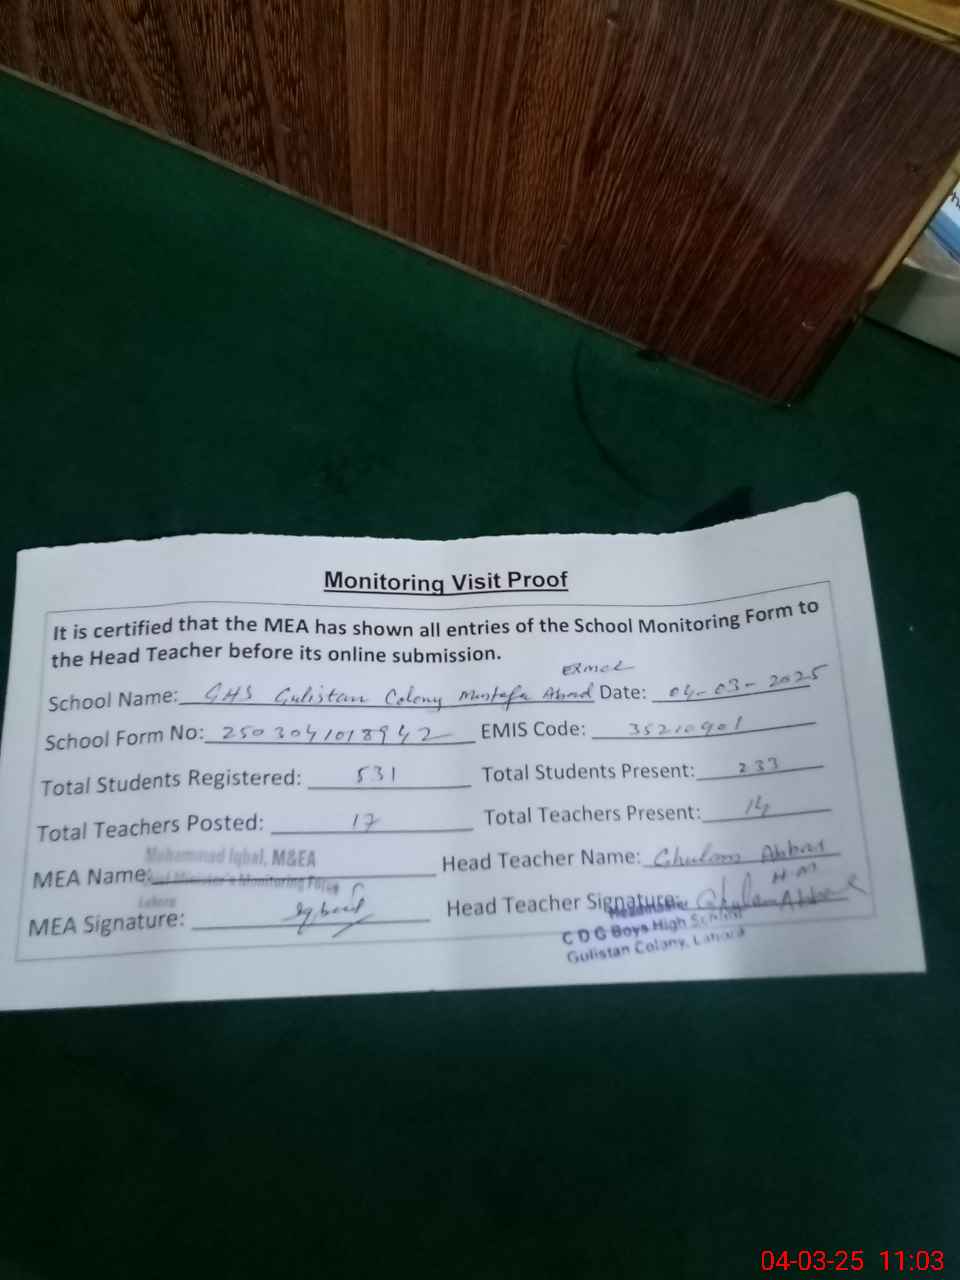 Monitoring Visit Proof
It is certified that the MEA has shown all entries of the School Monitoring Form to
the Head Teacher before its online submission.
School Name: GHS Gulistan Colony Mustafa Abad Date: 04-03-2025
School Form No: 2503041018942 EMIS Code: 35210901
Total Students Registered: 531 Total Students Present: 233
Total Teachers Posted: 17 Total Teachers Present: 14
Muhammad Iqbal, M&EA
MEA Name: Chief Minister's Monitoring Force Head Teacher Name: Ghulam Abbas
Lahore
MEA Signature: Iqbal Head Teacher Signature: Ghulam Abbas
H.M
Headmaster
C D G Boys High School
Gulistan Colony, Lahore
04-03-25 11:03